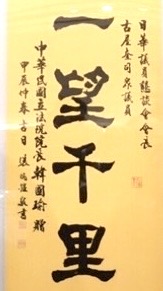 日華議員懇談會會長
古屋圭司眾議員
一望千里
中華民國立法院院長韓國瑜 贈
甲辰仲春吉日 張炳煌敬書